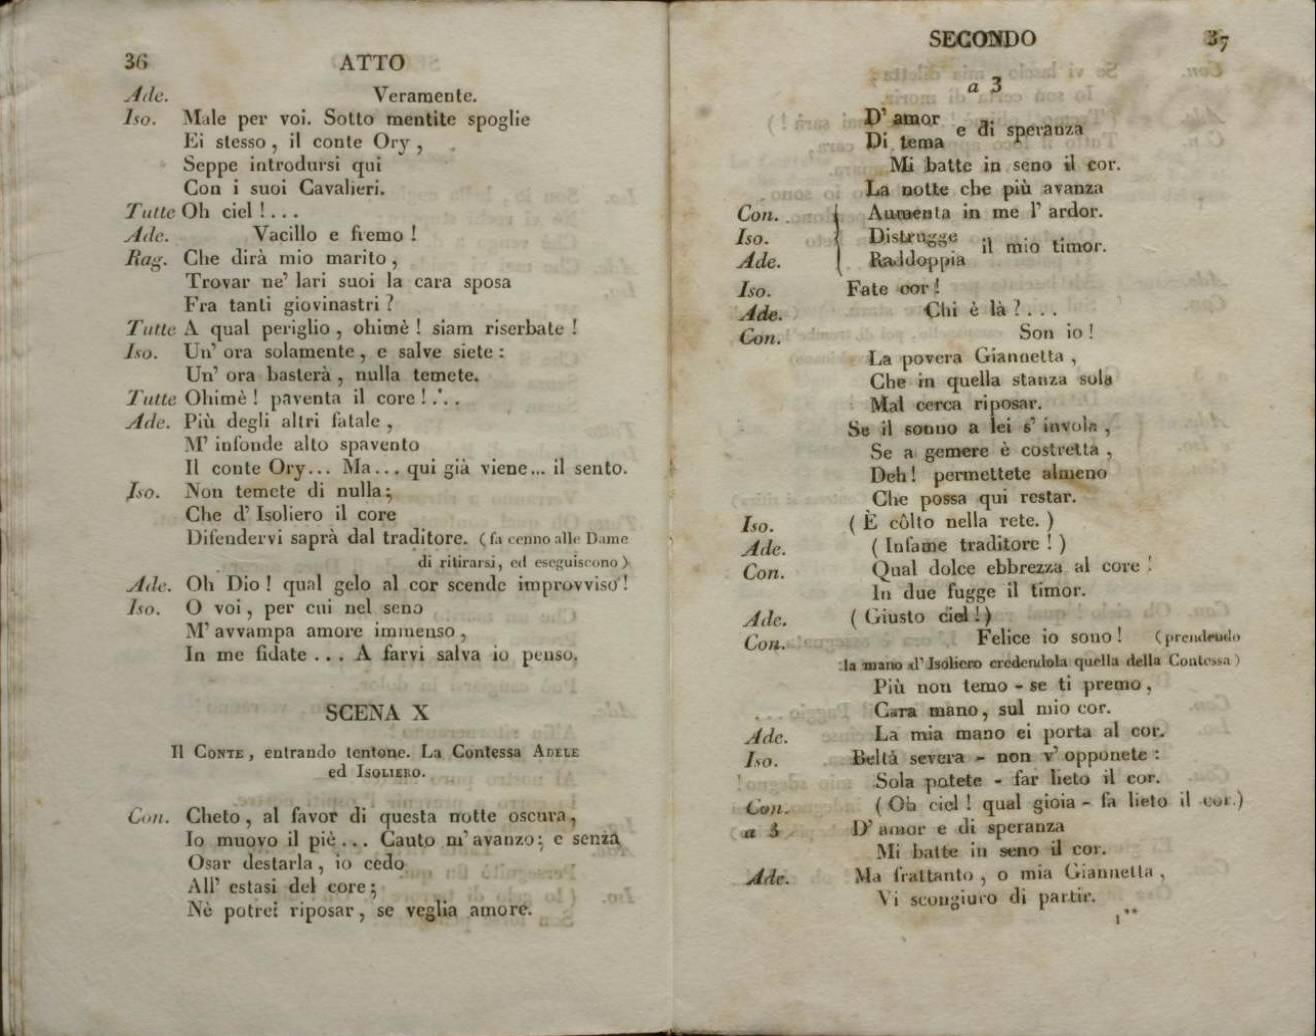 36 ATTO
Ade. Veramente.
Iso. Male per voi. Sotto mentite spoglie
Ei stesso, il conte Ory,
Seppe introdursi qui
Con i suoi Cavalieri.
Tutte Oh ciel!...
Ade. Vacillo e fremo!
Rag. Che dirà mio marito,
Trovar ne' lari suoi la cara sposa
Fra tanti giovinastri?
Tutte A qual periglio, ohimè! siam riserbate!
Iso. Un' ora solamente, e salve siete:
Un' ora basterà, nulla temete.
Tutte Ohimè! paventa il core!...
Ade. Più degli altri fatale,
M' infonde alto spavento
Il conte Ory... Ma... qui già viene... il sento.
Iso. Non temete di nulla;
Che d' Isoliero il core
Difendervi saprà dal traditore. (fa cenno alle Dame
di ritirarsi, ed eseguiscono)
Ade. Oh Dio! qual gelo al cor scende improvviso!
Iso. O voi, per cui nel seno
M' avvampa amore immenso,
In me fidate... A farvi salva io penso.
SCENA X
Il CONTE, entrando tentone. La Contessa ADELE
ed ISOLIERO.
Con. Cheto, al favor di questa notte oscura,
Io muovo il piè... Cauto m' avanzo; e senza
Osar destarla, io cedo
All' estasi del core;
Nè potrei riposar, se veglia amore.
SECONDO 37
a 3
D' amor
Di tema e di speranza
Mi batte in seno il cor.
La notte che più avanza
Con. Aumenta in me l' ardor.
Iso. Distrugge
Ade. Raddoppia il mio timor.
Iso. Fate cor!
Ade. Chi è là?...
Con. Son io!
La povera Giannetta,
Che in quella stanza sola
Mal cerca riposar.
Se il sonno a lei s' invola,
Se a gemere è costretta,
Deh! permettete almeno
Che possa qui restar.
Iso. (È côlto nella rete.)
Ade. (Infame traditore!)
Con. Qual dolce ebbrezza al core!
In due fugge il timor.
Ade. (Giusto ciel!)
Con. Felice io sono! (prendendo
la mano d' Isoliero credendola quella della Contessa)
Più non temo - se ti premo,
Cara mano, sul mio cor.
Ade. La mia mano ei porta al cor.
Iso. Beltà severa - non v' opponete:
Sola potete - far lieto il cor.
Con. (Oh ciel! qual gioia - fa lieto il cor.)
a 3 D' amor e di speranza
Mi batte in seno il cor.
Ade. Ma frattanto, o mia Giannetta,
Vi scongiuro di partir.
1**